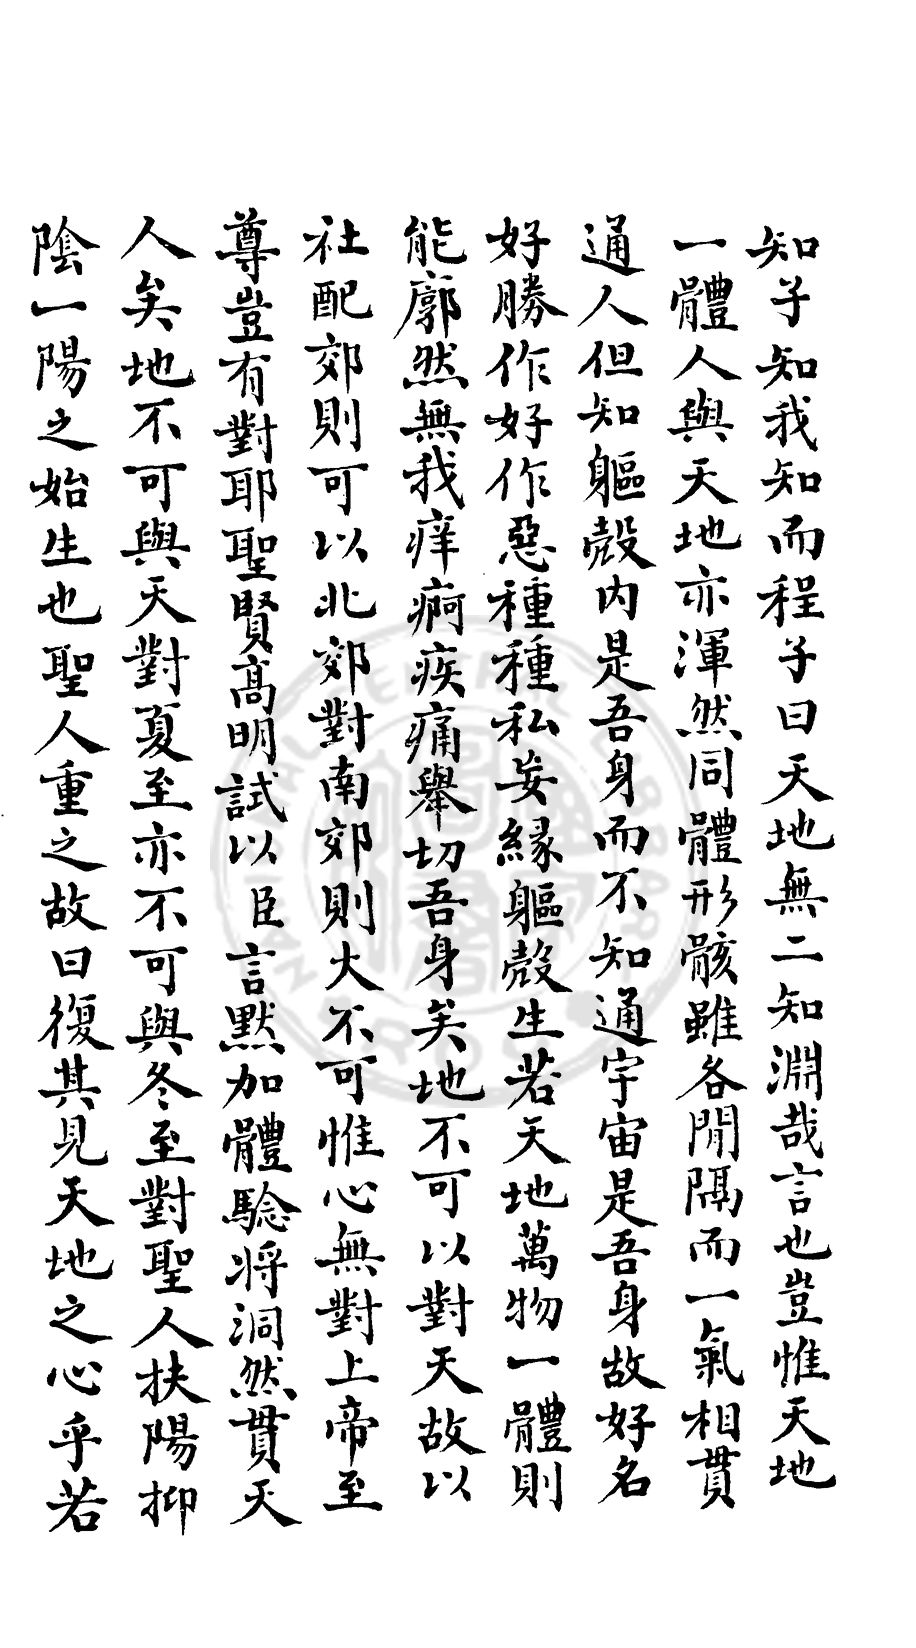 知子知我知而程子曰天地無二知淵哉言也豈惟天地
一體人與天地亦渾然同體形骸雖各閒隔而一氣相貫
通人但知軀殼內是吾身而不知通宇宙是吾身故好名
好勝作好作惡種種私妄緣軀殼生若天地萬物一體則
能廓然無我痒痾疾痛舉切吾身矣地不可以對天故以
社配郊則可以北郊對南郊則大不可惟心無對上帝至
尊豈有對耶聖賢高明試以臣言默加體驗將洞然貫天
人矣地不可與天對夏至亦不可與冬至對聖人扶陽抑
陰一陽之始生也聖人重之故曰復其見天地之心乎若